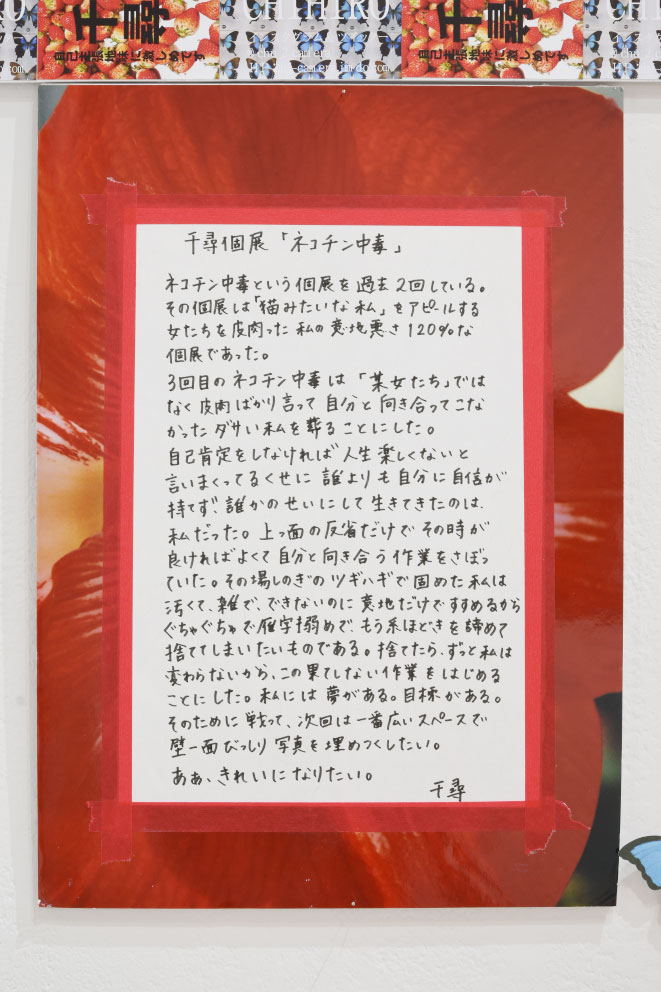 CHIHIRO
千尋
自己主張地味に激しめです
千尋
自己主張地味に激しめです
千尋個展「ネコチン中毒」
ネコチン中毒という個展を過去2回している。
その個展は「猫みたいな私」をアピールする
女たちを皮肉った私の意地悪さ120%な
個展であった。
3回目のネコチン中毒は「某女たち」では
なく皮肉ばかり言って自分と向き合ってこな
かったダサい私を葬ることにした。
自己肯定をしなければ人生楽しくないと
言いまくってるくせに誰よりも自分に自信が
持てず、誰かのせいにして生きてきたのは、
私だった。上っ面の反省だけでその時が
良ければよくて自分と向き合う作業をさぼっ
ていた。その場しのぎのツギハギで固めた私は
汚くて、雑で、できないのに意地だけですすめるから
ぐちゃぐちゃで雁字搦めで、もう糸ほどきを諦めて
捨ててしまいたいものである。捨てたら、ずっと私は
変わらないから、この果てしない作業をはじめる
ことにした。私には夢がある。目標がある。
そのために戦って、次回は一番広いスペースで
壁一面びっしり写真を埋めつくしたい。
ああ、きれいになりたい。
千尋